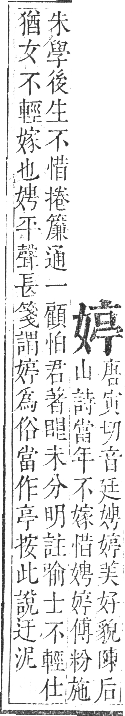 婷
唐寅切音廷娉婷美好貌陳后
山詩當年不嫁惜娉婷傅粉施
朱學後生不惜捲簾通一顧怕君著眼未分明註喻士不輕仕
猶女不輕嫁也娉平聲長箋謂婷爲俗當作亭按此說迂泥